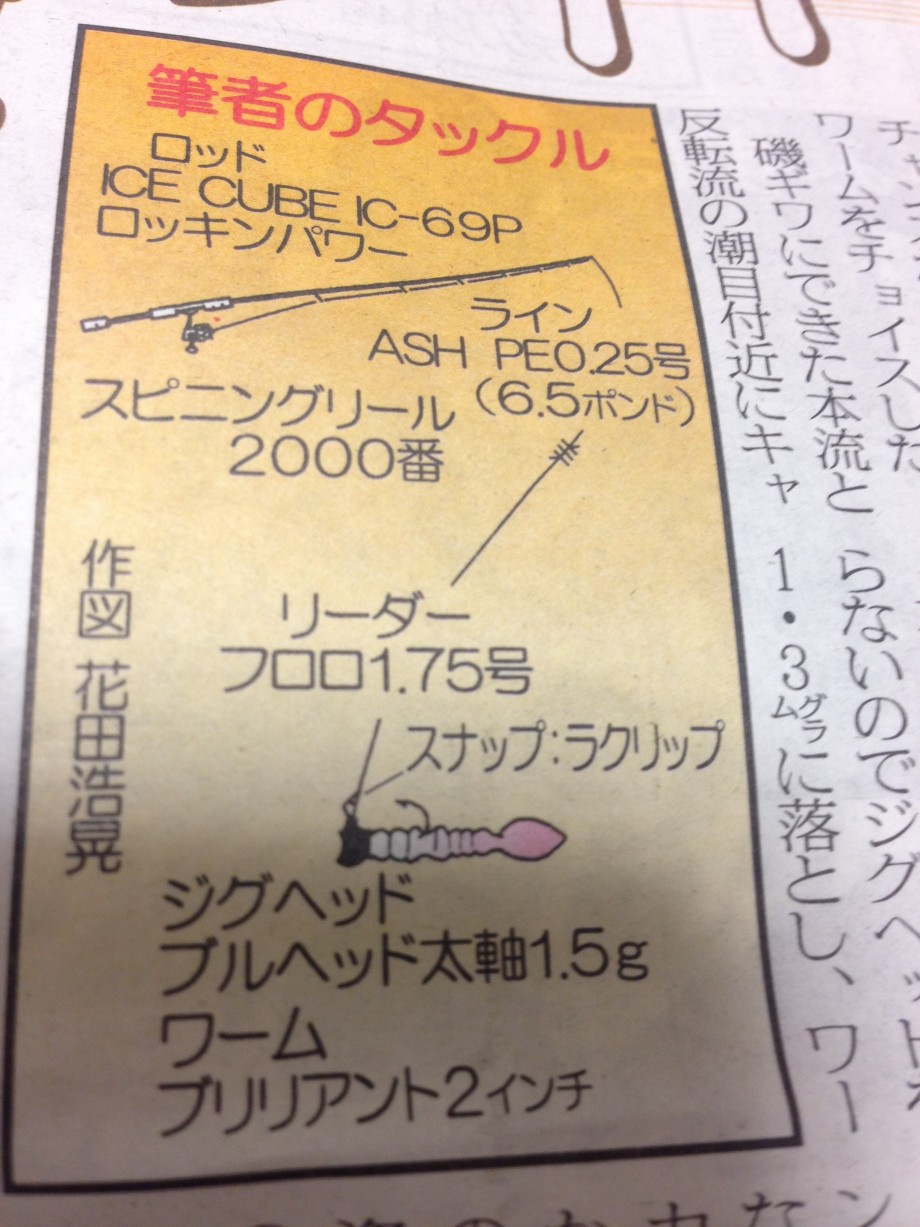 筆者のタックル
ロッド
ICE CUBE IC-69P
ロッキンパワー
ライン
ASH PE0.25号
(6.5ポンド)
スピニングリール
2000番
リーダー
フロロ1.75号
スナップ:ラクリップ
ジグヘッド
ブルヘッド太軸1.5g
ワーム
ブリリアント2インチ
作図 花田浩晃
ワームをチョイスした
磯ギワにできた本流と
反転流の潮目付近にキャ
らないのでジグヘッド
1・3グラムに落とし、ワー